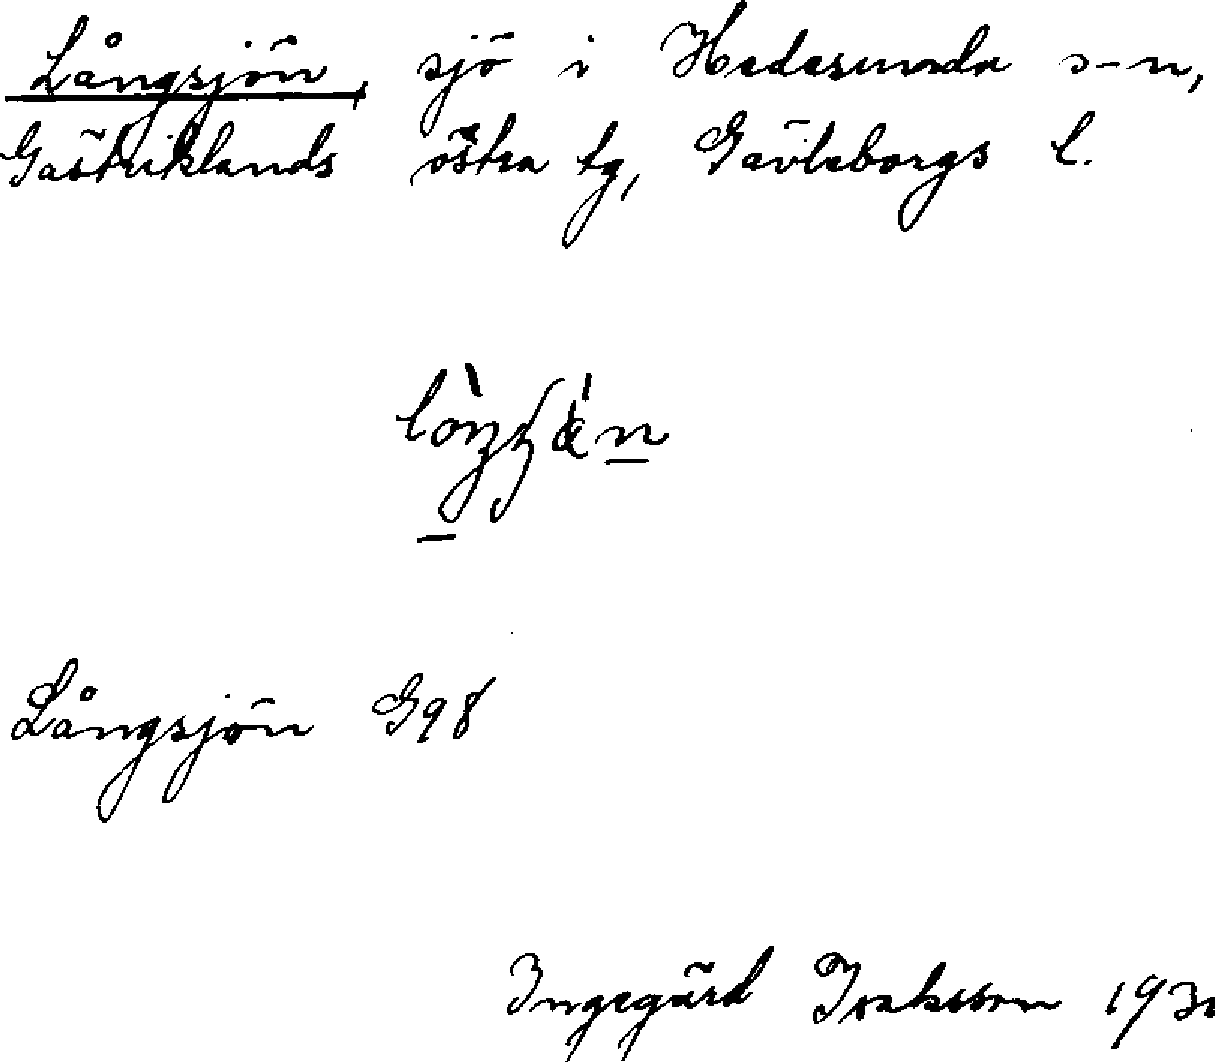 Långsjön, sjö i Hedesunda s-n,
Gästriklands östra tg, Gävleborgs l.
Långsjön G98
Ingegärd Isaksson